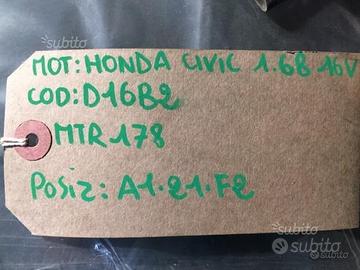 subito
MOT: HONDA CIVIC 1.6B 16V
COD: D16B2
MTR 178
POSIZ: A1.21.F2
subito
subito
subito